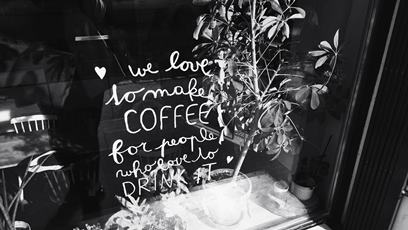 we love
to make
COFFEE
for people
who love to
DRINK IT